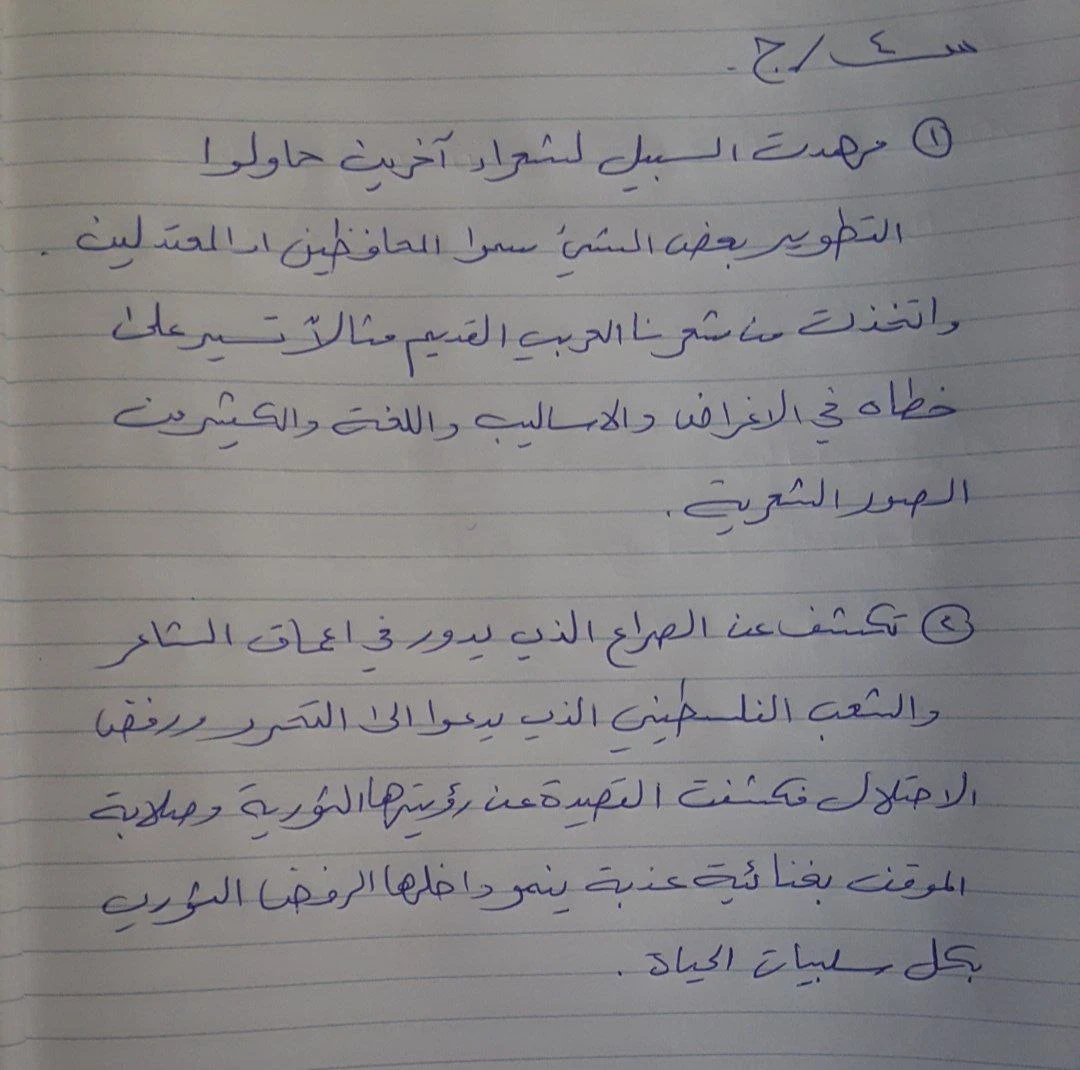 س٤/ج.
① مهدت السبيل لشعراء آخرين حاولوا
التطوير بعض الشيء سموا المحافظين او المعتدلين.
واتخذت من شعرنا العربي القديم مثالاً تسير على
خطاه في الاغراض والاساليب واللغة والكثير من
الصور الشعرية.
② تكشف عن الصراع الذي يدور في اعماق الشاعر
والشعب الفلسطيني الذي يدعوا الى التحرر ورفض
الاحتلال فكشفت القصيدة عن رؤيتها الثورية وصلابة
الموقف بغنائية عذبة ينمو داخلها الرفض الثوري
بكل سلبيات الحياة.